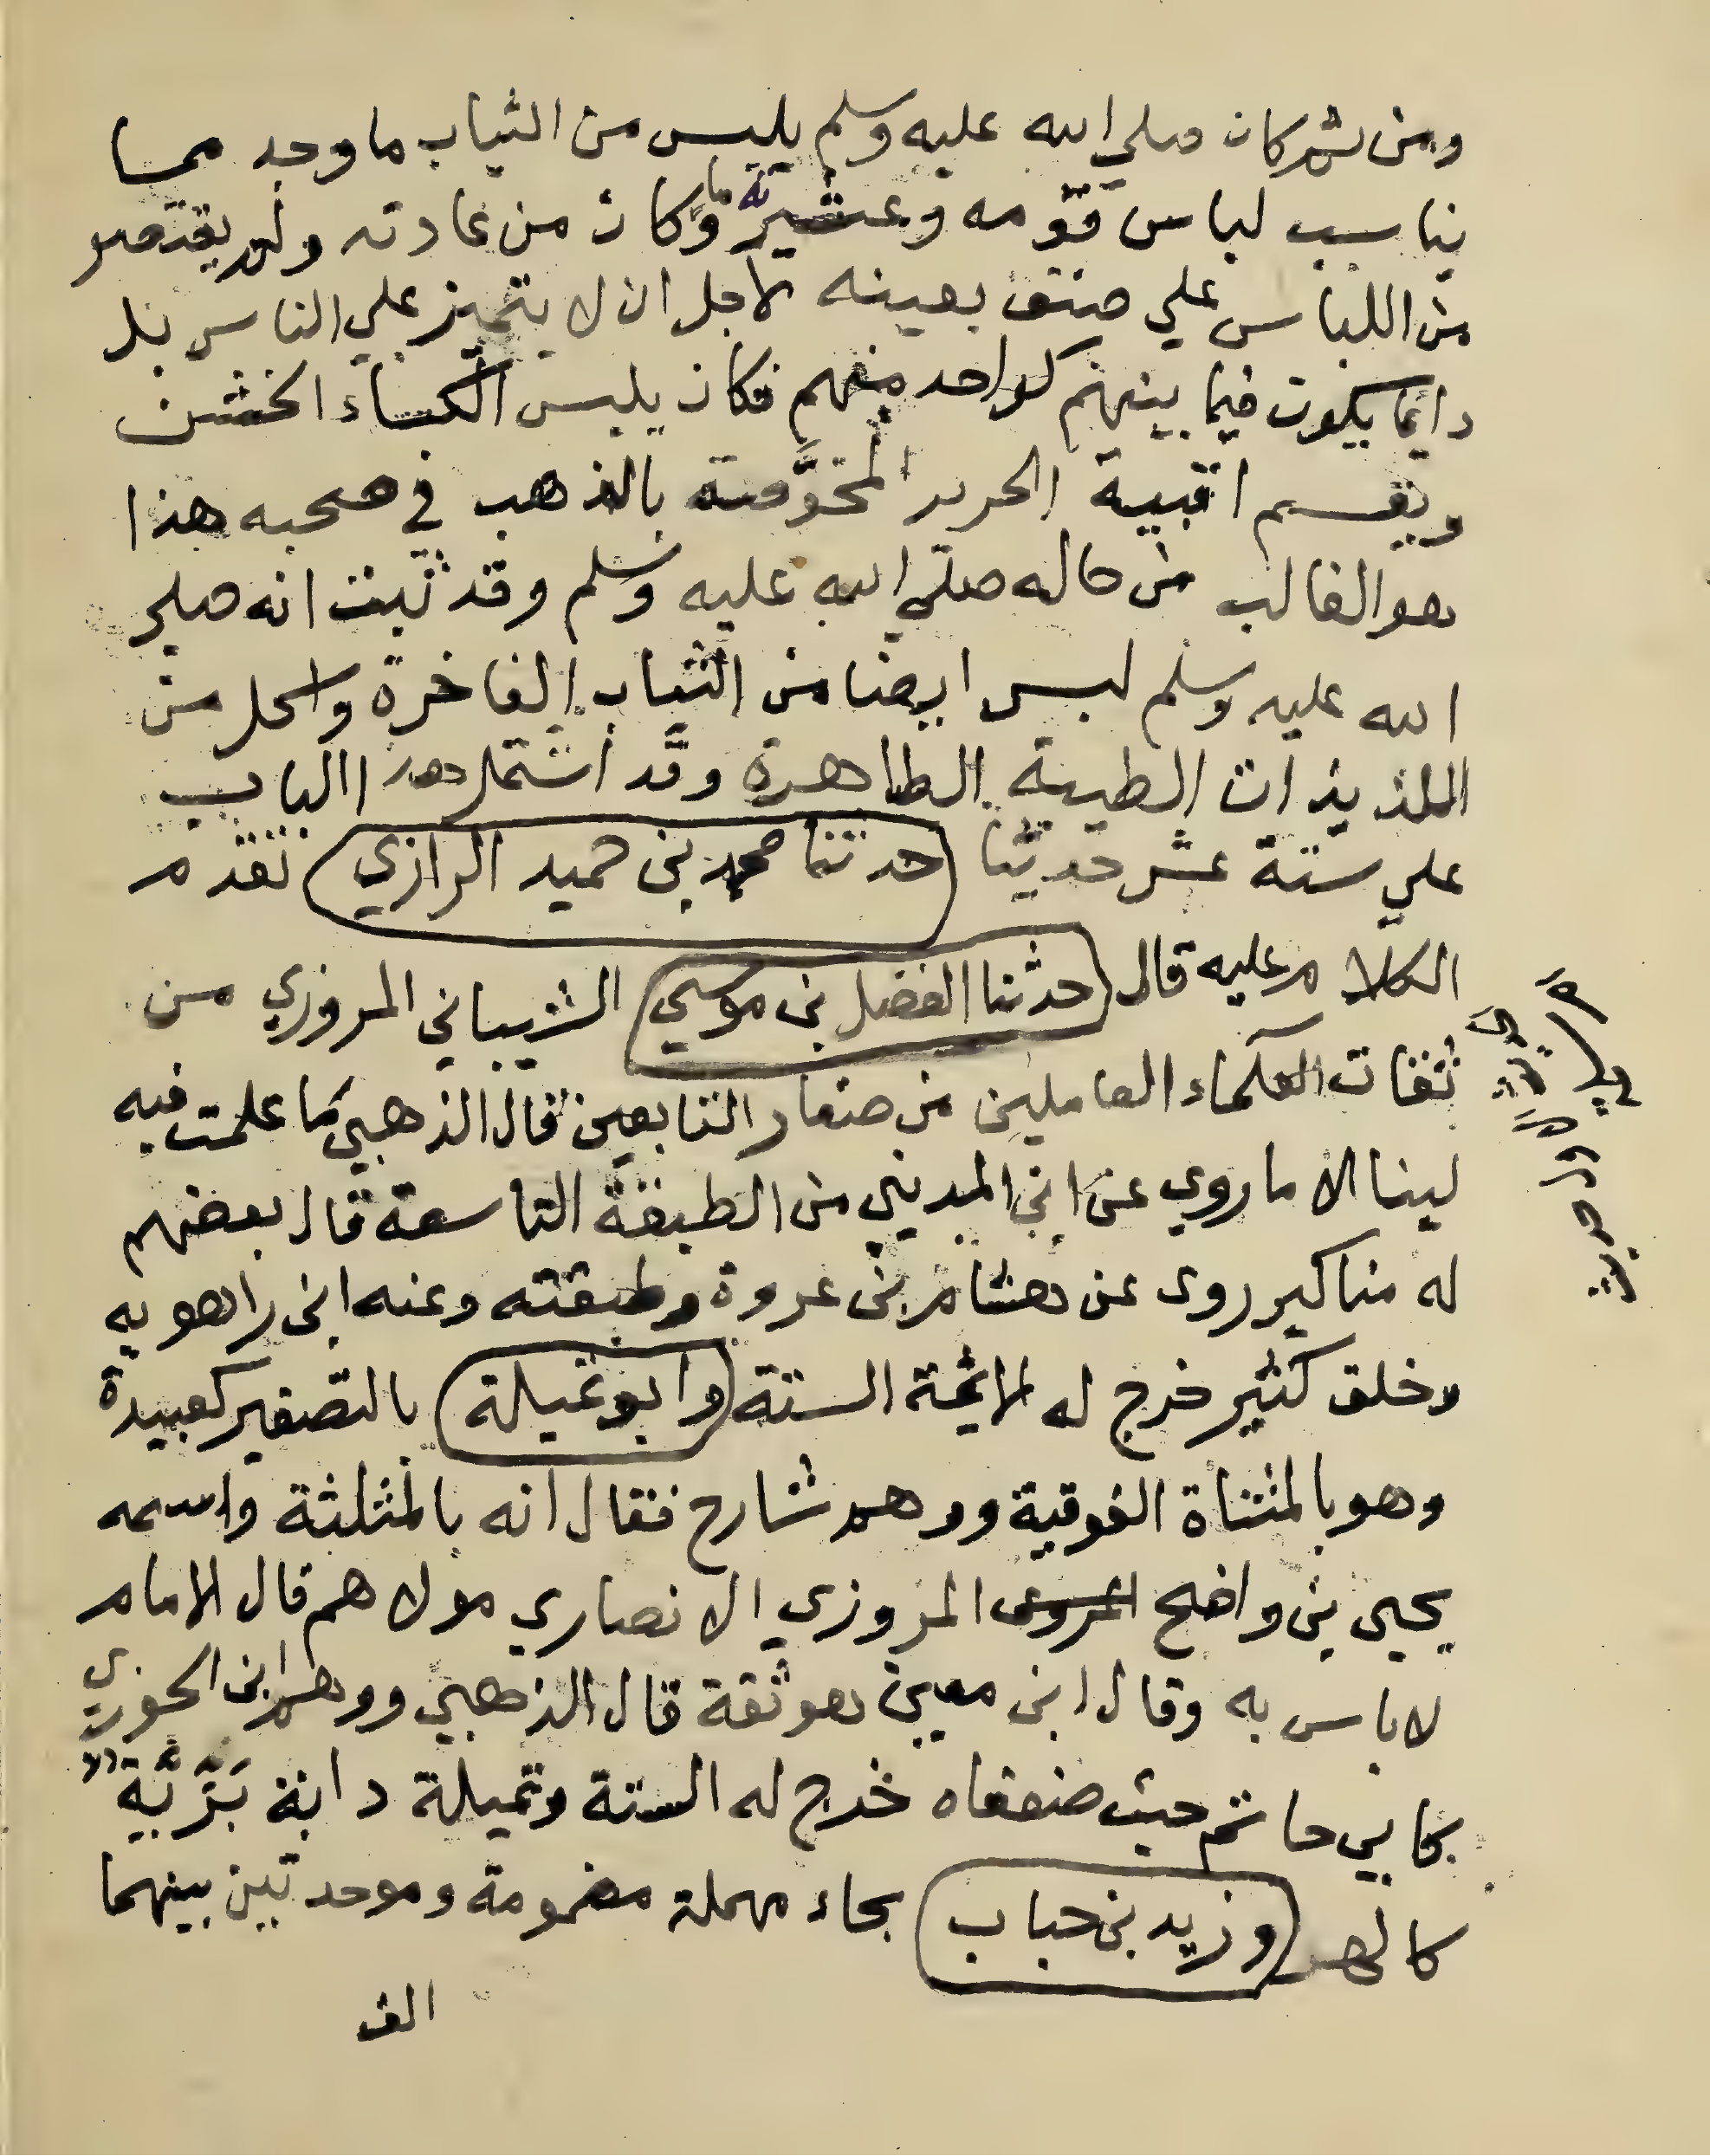 ومن ثم كان صلي الله عليه وسلم يلبس من الثياب ما وجد مما
يناسب لباس قومه وعشيرته وما كان من عادته ولم يقتصر
من اللباس علي صنف بعينه لاجل ان لا يتميز علي الناس بل
دايما يكون فيما بينهم كواحد منهم فكان يلبس الكساء الخشن
ويقسم اقبية الحرير المخوَّصة بالذهب في صحبه هذا
هو الغالب من حاله صلي الله عليه وسلم وقد ثبت انه صلي
الله عليه وسلم لبس ايضا من الثياب الفاخرة واكل من
اللذيذات الطيبة الطاهرة وقد اشتمل هذا الباب
علي ستة عشر حديثا (حدثنا محمد بن حميد الرازي) تقدم
الكلام عليه قال (حدثنا الفضل بن موسي) الشيباني المروزي من
ثقات العلماء العاملين من صغار التابعين قال الذهبي ما علمت فيه
لينا الا ما روي عن ابن المديني من الطبقة التاسعة قال بعضهم
له مناكير روى عن هشام بن عروة وطبقته وعنه ابن راهويه
وخلق كثير خرج له الائمة الستة (وابو تميلة) بالتصغير كعبيدة
وهو بالمثناة الفوقية ووهم شارح فقال انه بالمثلثة واسمه
يحيى بن واضح المروزي الانصاري مولاهم قال الامام
لا باس به وقال ابن معين هو ثقة قال الذهبي ووهم ابن الجوزي
كابي حاتم حيث ضعفاه خرج له الستة وتميلة دابة بَرِّيَّة
كالهر (وزيد بن حباب) بحاء مهملة مضمومة وموحدتين بينهما
الف
الاول حديث